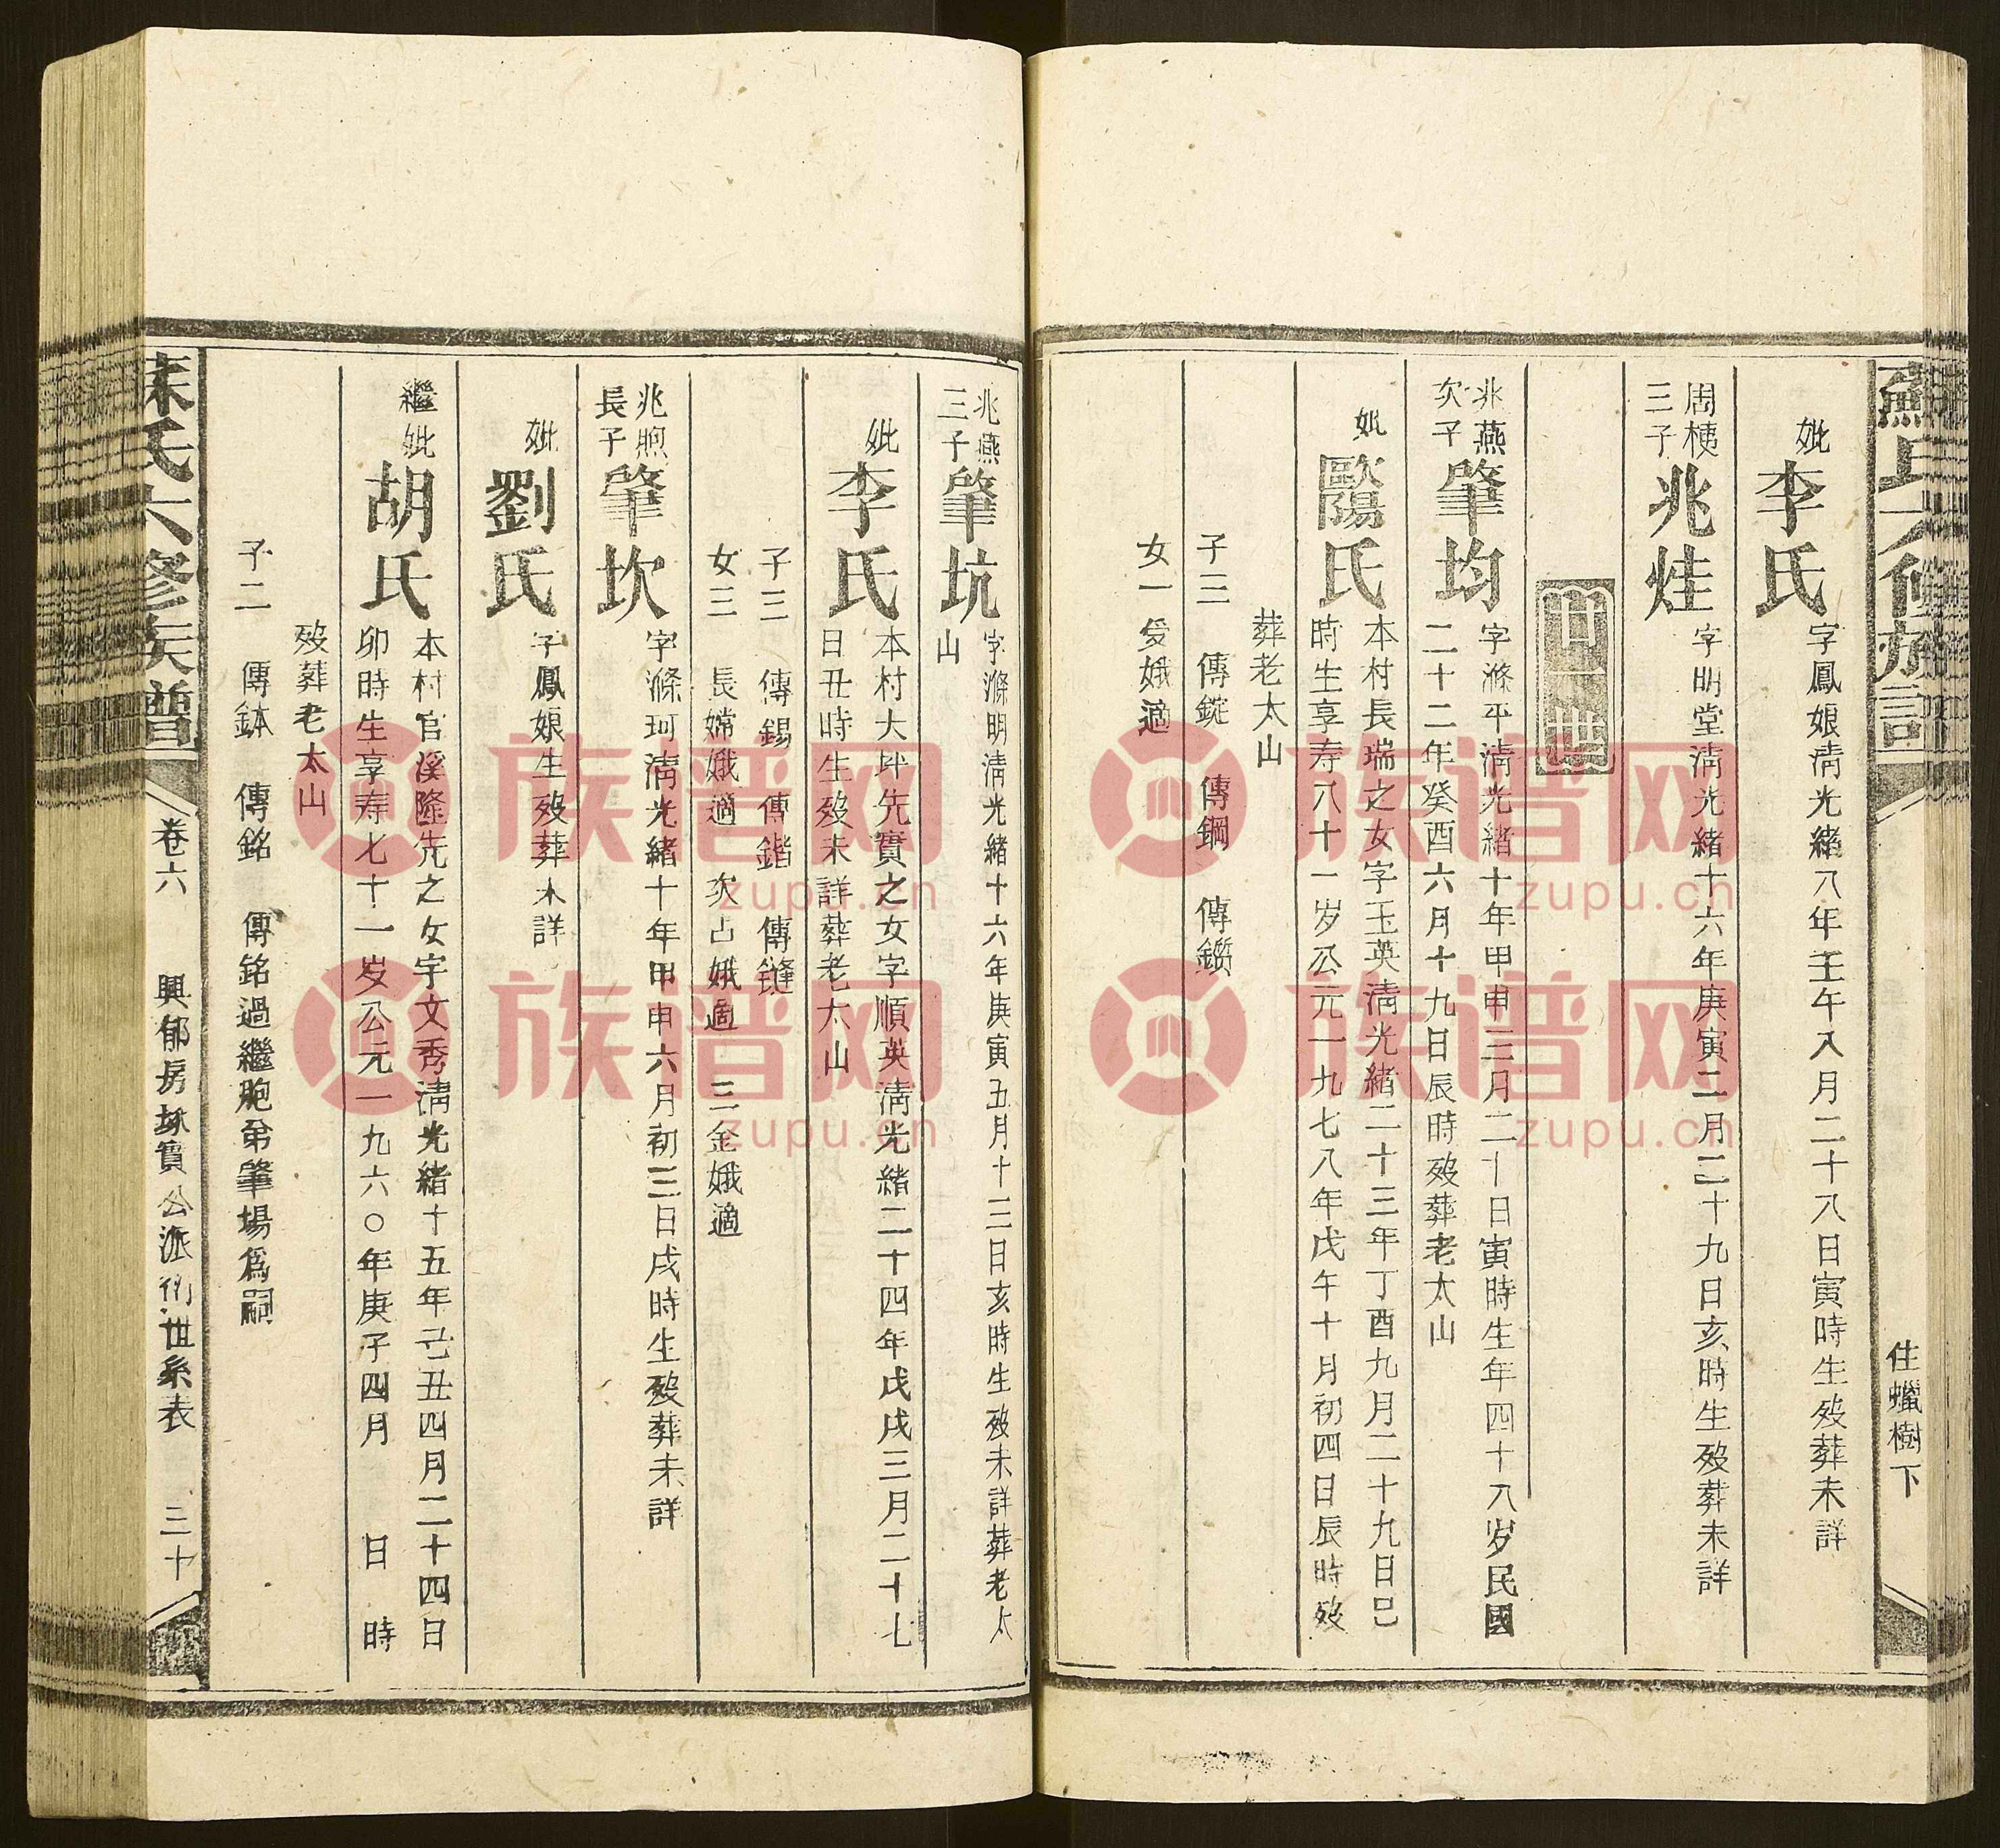 蘇氏六修族譜
住蠟樹下
妣李氏
字鳳娘清光緒八年壬午八月二十八日寅時生歿葬未詳
周桋三子兆烓
字明堂清光緒十六年庚寅二月二十九日亥時生歿葬未詳
廿一世
兆燕次子肇均
字滌平清光緒十年甲申三月二十日寅時生年四十八岁民國
二十二年癸酉六月十九日辰時歿葬老太山
妣歐陽氏
本村長瑞之女字玉英清光緒二十三年丁酉九月二十九日巳
時生享寿八十一岁公元一九七八年戊午十月初四日辰時歿
葬老太山
子三 傳錠 傳鋼 傳鑽
女一 愛娥適
兆燕三子肇坑
字滌明清光緒十六年庚寅五月十三日亥時生歿未詳葬老太
山
妣李氏
本村大坪先實之女字順英清光緒二十四年戊戌三月二十七
日丑時生歿未詳葬老太山
子三 傳錫 傳鍇 傳鏠
女三 長嫦娥適 次占娥適 三金娥適
兆煦長子肇坎
字滌珂清光緒十年甲申六月初三日戌時生歿葬未詳
妣劉氏
子鳳娘生歿葬未詳
繼妣胡氏
本村官溪隆先之女字文秀清光緒十五年己丑四月二十四日
卯時生享寿七十一岁公元一九六〇年庚子四月 日 時
歿葬老太山
子二 傳鉢 傳銘 傳銘過繼胞弟肇場爲嗣
蘇氏六修族譜
卷六 興郁房琢寶公派衍世系表 三十
族谱网
zupu.cn
族谱网
zupu.cn
族谱网
zupu.cn
族谱网
zupu.cn